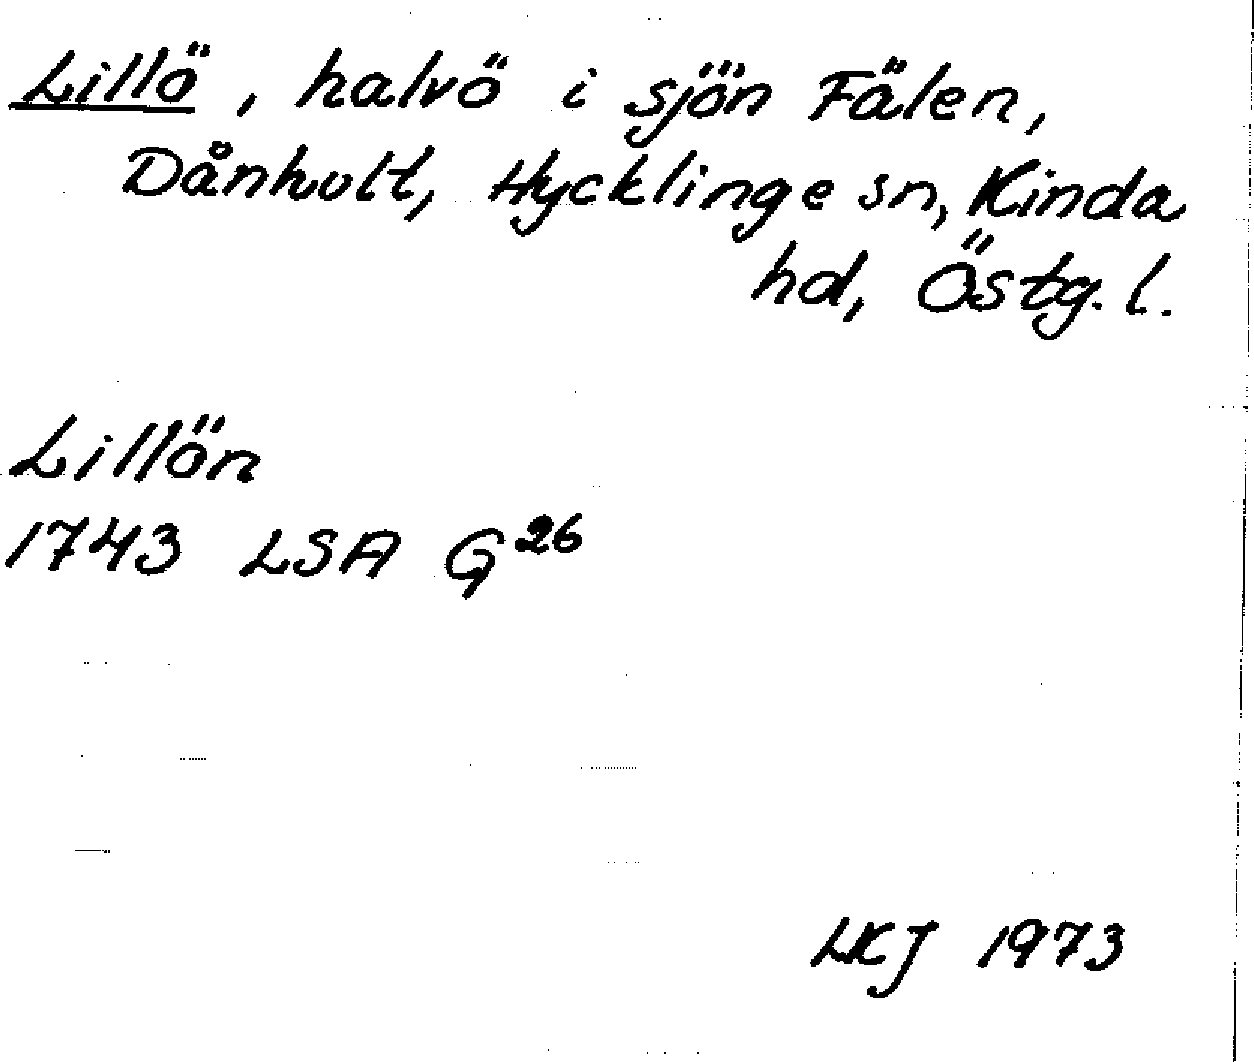 Lillö, halvö i sjön Fälen,
Dånhult, Hycklinge sn, Kinda
hd, Östg. l.
Lillön
1743 LSA G 26
LKJ 1973